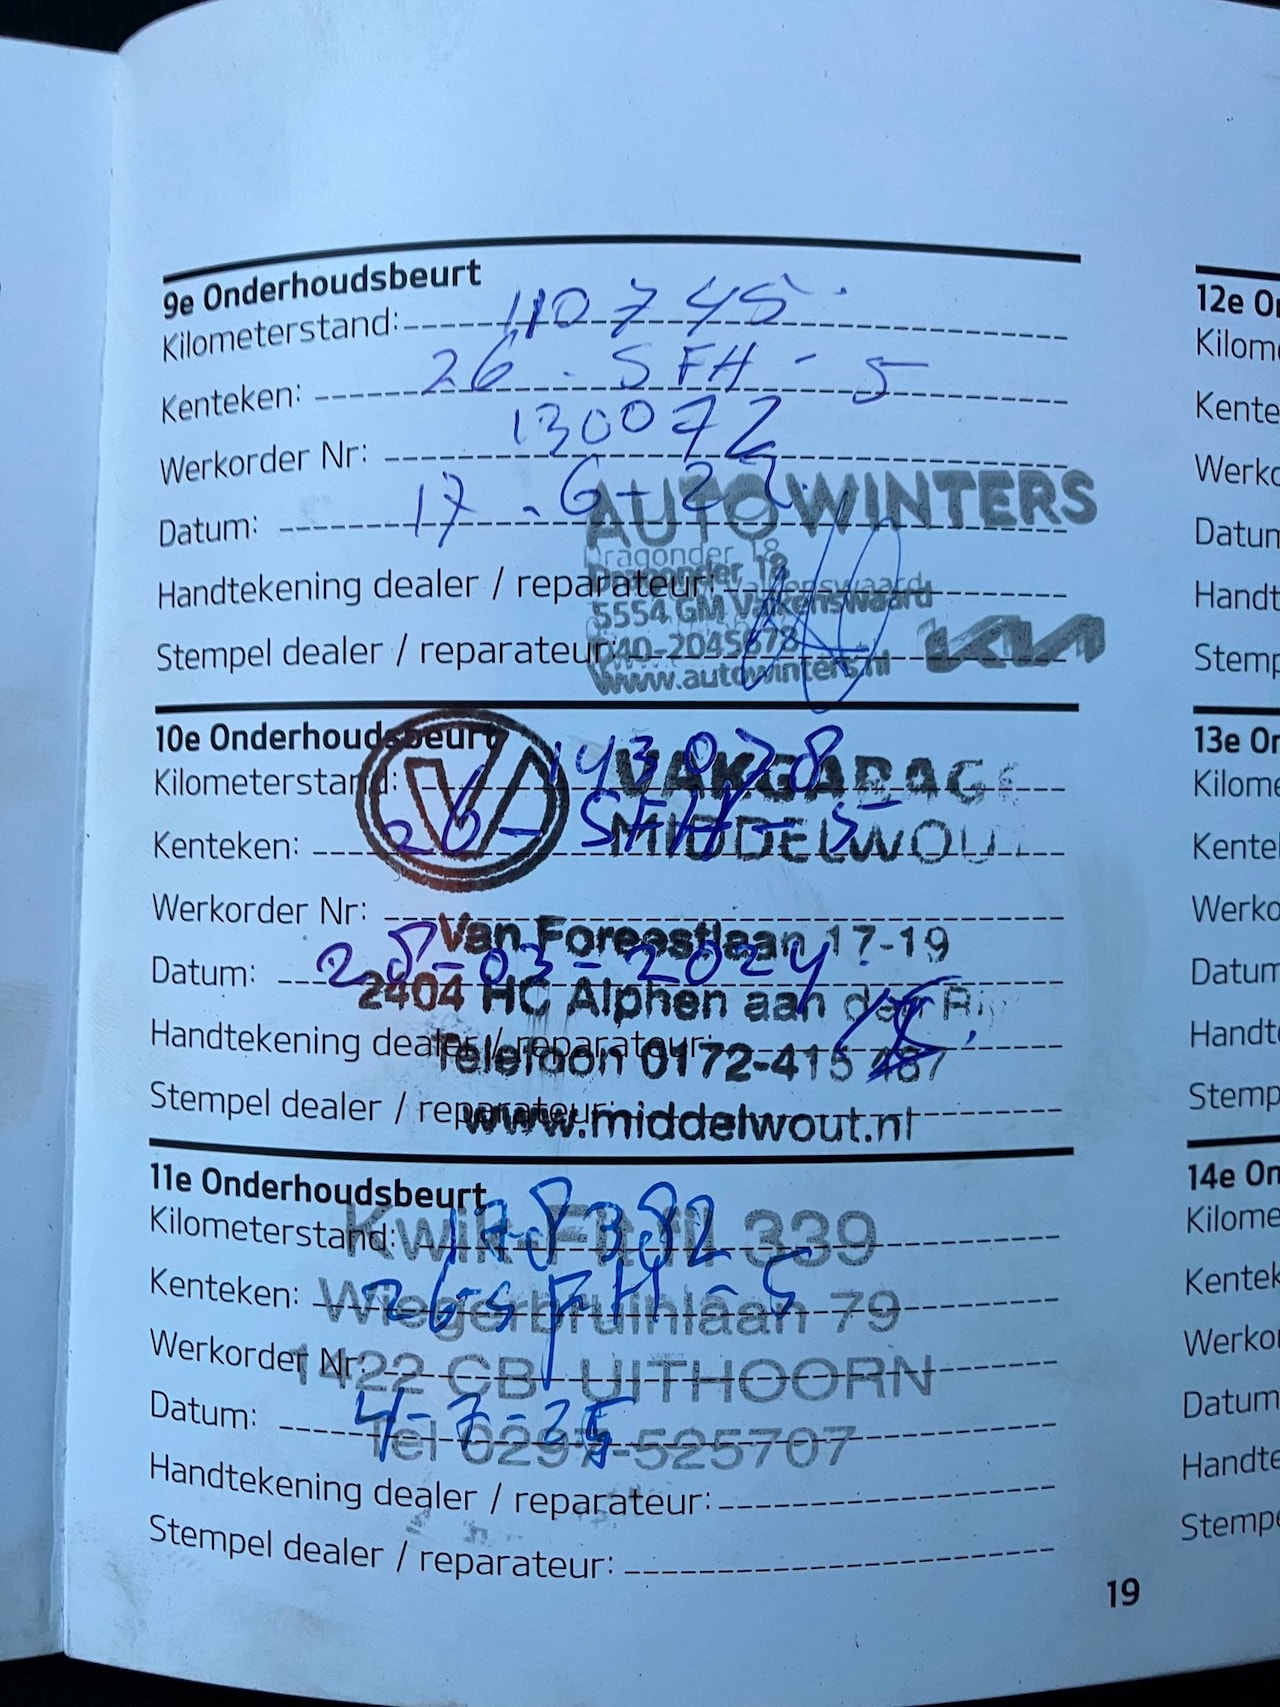 9e Onderhoudsbeurt
Kilometerstand: 110745
Kenteken: 26-SFH-5
Werkorder Nr: 130072
Datum: 17-6-22
AUTO WINTERS
Dragonder 18
Handtekening dealer / reparateur:
5554 GM Valkenswaard
Stempel dealer / reparateur:
040-2045678
www.autowinters.nl
KIA
10e Onderhoudsbeurt
Kilometerstand: 143078
VAKGARAGE
Kenteken: 26-SFH-5
MIDDELWOU
Werkorder Nr:
Van Foreestlaan 17-19
Datum: 28-03-2024
2404 HC Alphen aan den Rij
Handtekening dealer / reparateur:
Telefoon 0172-415 487
Stempel dealer / reparateur:
www.middelwout.nl
11e Onderhoudsbeurt
Kilometerstand: 178382
Kwik-Fit fil 339
Kenteken: 26-SFH-5
Wiegerbruinlaan 79
Werkorder Nr:
1422 CB UITHOORN
Datum: 4-7-25
Tel 0297-525707
Handtekening dealer / reparateur:
Stempel dealer / reparateur:
19
12e O
Kilome
Kente
Werko
Datum
Handt
Stemp
13e On
Kilome
Kente
Werko
Datum
Handt
Stemp
14e On
Kilome
Kentek
Werko
Datum
Handte
Stempe